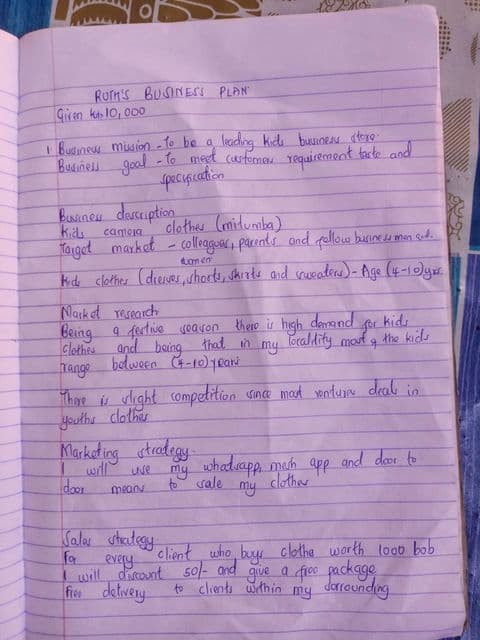 RUTH'S BUSINESS PLAN
Given ksh 10,000
1 Business mission - To be a leading kids business store.
Business goal - To meet customer requirement taste and
specification
Business description
Kids camera clothes (mitumba)
Target market - colleagues, parents and fellow business men and
women
Kids clothes (dresses, shorts, shirts and sweaters) - Age (4-10) yrs
Market research
Being a festive season there is high demand for kids
clothes and being that in my locality most of the kids
range between (4-10) years
There is slight competition since most ventures deals in
youths clothes
Marketing strategy.
I will use my whatsapp, mesh app and door to
door means to sale my clothes
Sales strategy
For every client who buys clothe worth 1000 bob
I will discount 50/- and give a free package
Free delivery to clients within my sorrounding